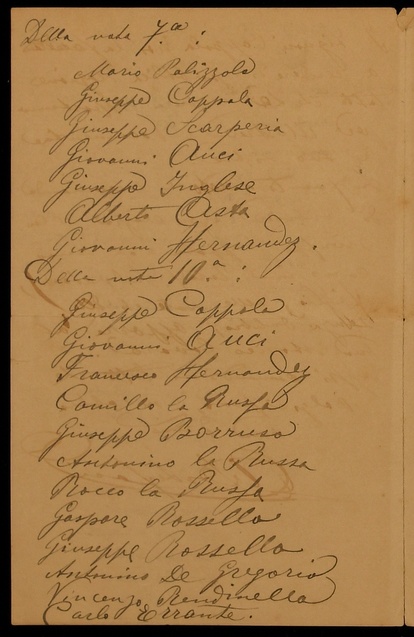 Della nota 7ª:
Mario Palizzolo
Giuseppe Coppola
Giuseppe Scarperia
Giovanni Auci
Giuseppe Inglese
Alberto Asta
Giovanni Hernandez.
Della nota 10.ª:
Giuseppe Coppola
Giovanni Auci
Francesco Hernandez
Camillo la Russa
Giuseppe Borruso
Antonino la Russa
Rocco la Russa
Gaspare Rossella
Giuseppe Rossella
Antonino De Gregorio
Vincenzo Rendinella
Carlo Errante.